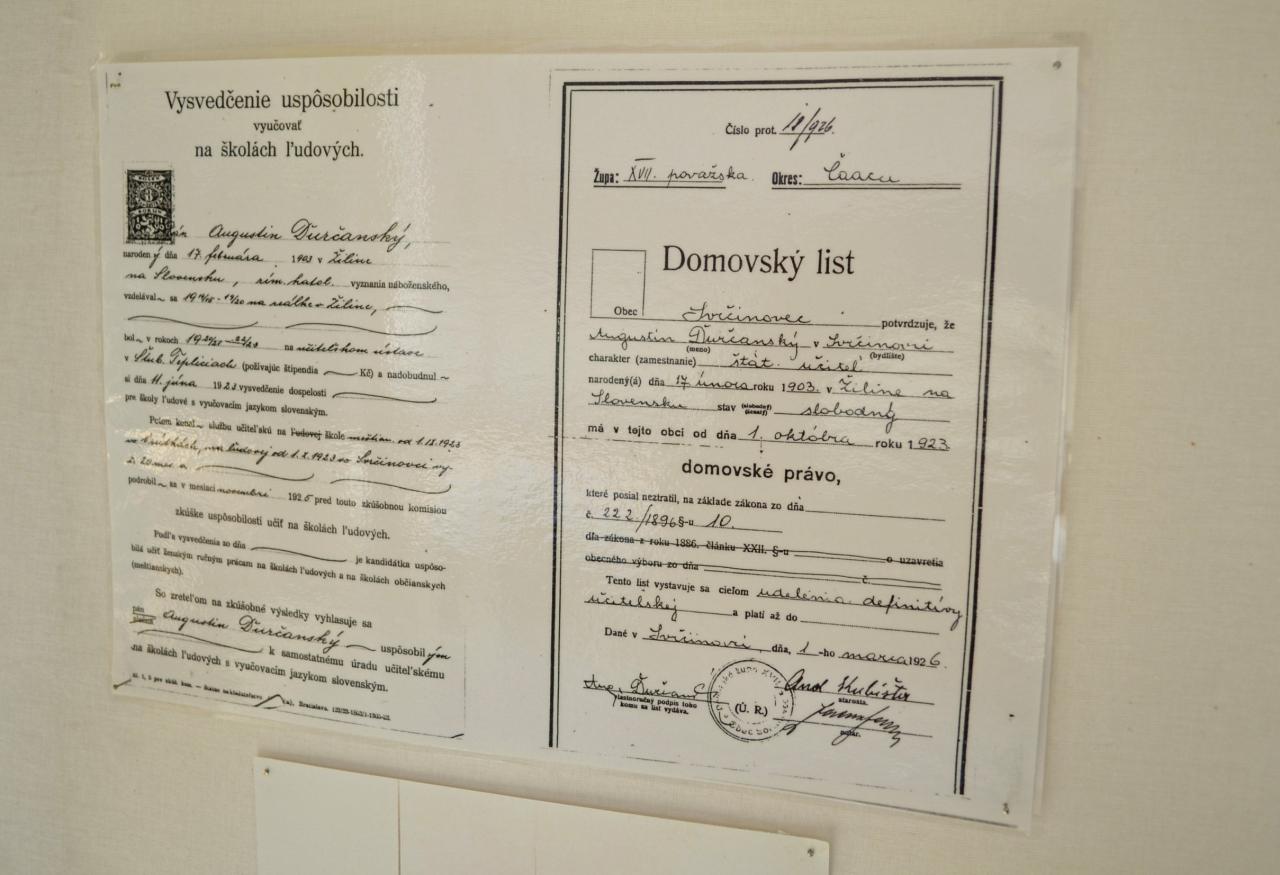 Vysvedčenie uspôsobilosti
vyučovať
na školách ľudových.
KOLEK
pán Augustin Ďurčanský,
narodený dňa 17. februára 1903 v Žiline
na Slovensku, rím. katol. vyznania náboženského,
vzdelával~ sa 19 na reálke v Žiline,
bol~ v rokoch 19 na učiteľskom ústave
v Štub. Tepliciach (požívajúc štipendia Kč) a nadobudnul~
si dňa 11. júna 1923 vysvedčenie dospelosti
pre školy ľudové s vyučovacím jazykom slovenským.
Potom konal~ službu učiteľskú na ľudovej škole meštian. od 1.IX.1923
na ľudovej od 1.X.1923 vo Svrčinovci
20 mes. a
podrobil~ sa v mesiaci novembri 1925 pred touto zkúšobnou komisiou
zkúške uspôsobilosti učiť na školách ľudových.
Podľa vysvedčenia zo dňa je kandidátka uspôso-
bilá učiť ženským ručným prácam na školách ľudových a na školách občianskych
(meštianskych).
So zreteľom na zkúšobné výsledky vyhlasuje sa
pán Augustin Ďurčanský ~ uspôsobilým
k samostatnému úradu učiteľskému
na školách ľudových s vyučovacím jazykom slovenským.
Bratislava.
Číslo prot. 18/926.
Župa: XVII. považska. Okres: Čaaca
Domovský list
Obec Svrčinovec potvrdzuje, že
Augustin Ďurčanský v Svrčinovci
(meno) (bydlište)
charakter (zamestnanie) štát. učiteľ
narodený(á) dňa 17 února roku 1903. v Žiline na
Slovensku stav (slobodný) (ženatý) slobodný
má v tejto obci od dňa 1. októbra roku 1923
domovské právo,
které posial neztratil, na základe zákona zo dňa
č. 222/1896 §-u 10.
dľa zákona z roku 1886. článku XXII. §-u o uzavretia
obecného výboru zo dňa č.
Tento list vystavuje sa cieľom udelenia definitívy
učiteľskej a platí až do
Dané v Svrčinovci, dňa, 1-ho marca 1926.
Aug. Ďurčanský
vlastnoručný podpis toho
komu sa list vydáva.
(Ú. R.)
And Kubišta
starosta.
notár.